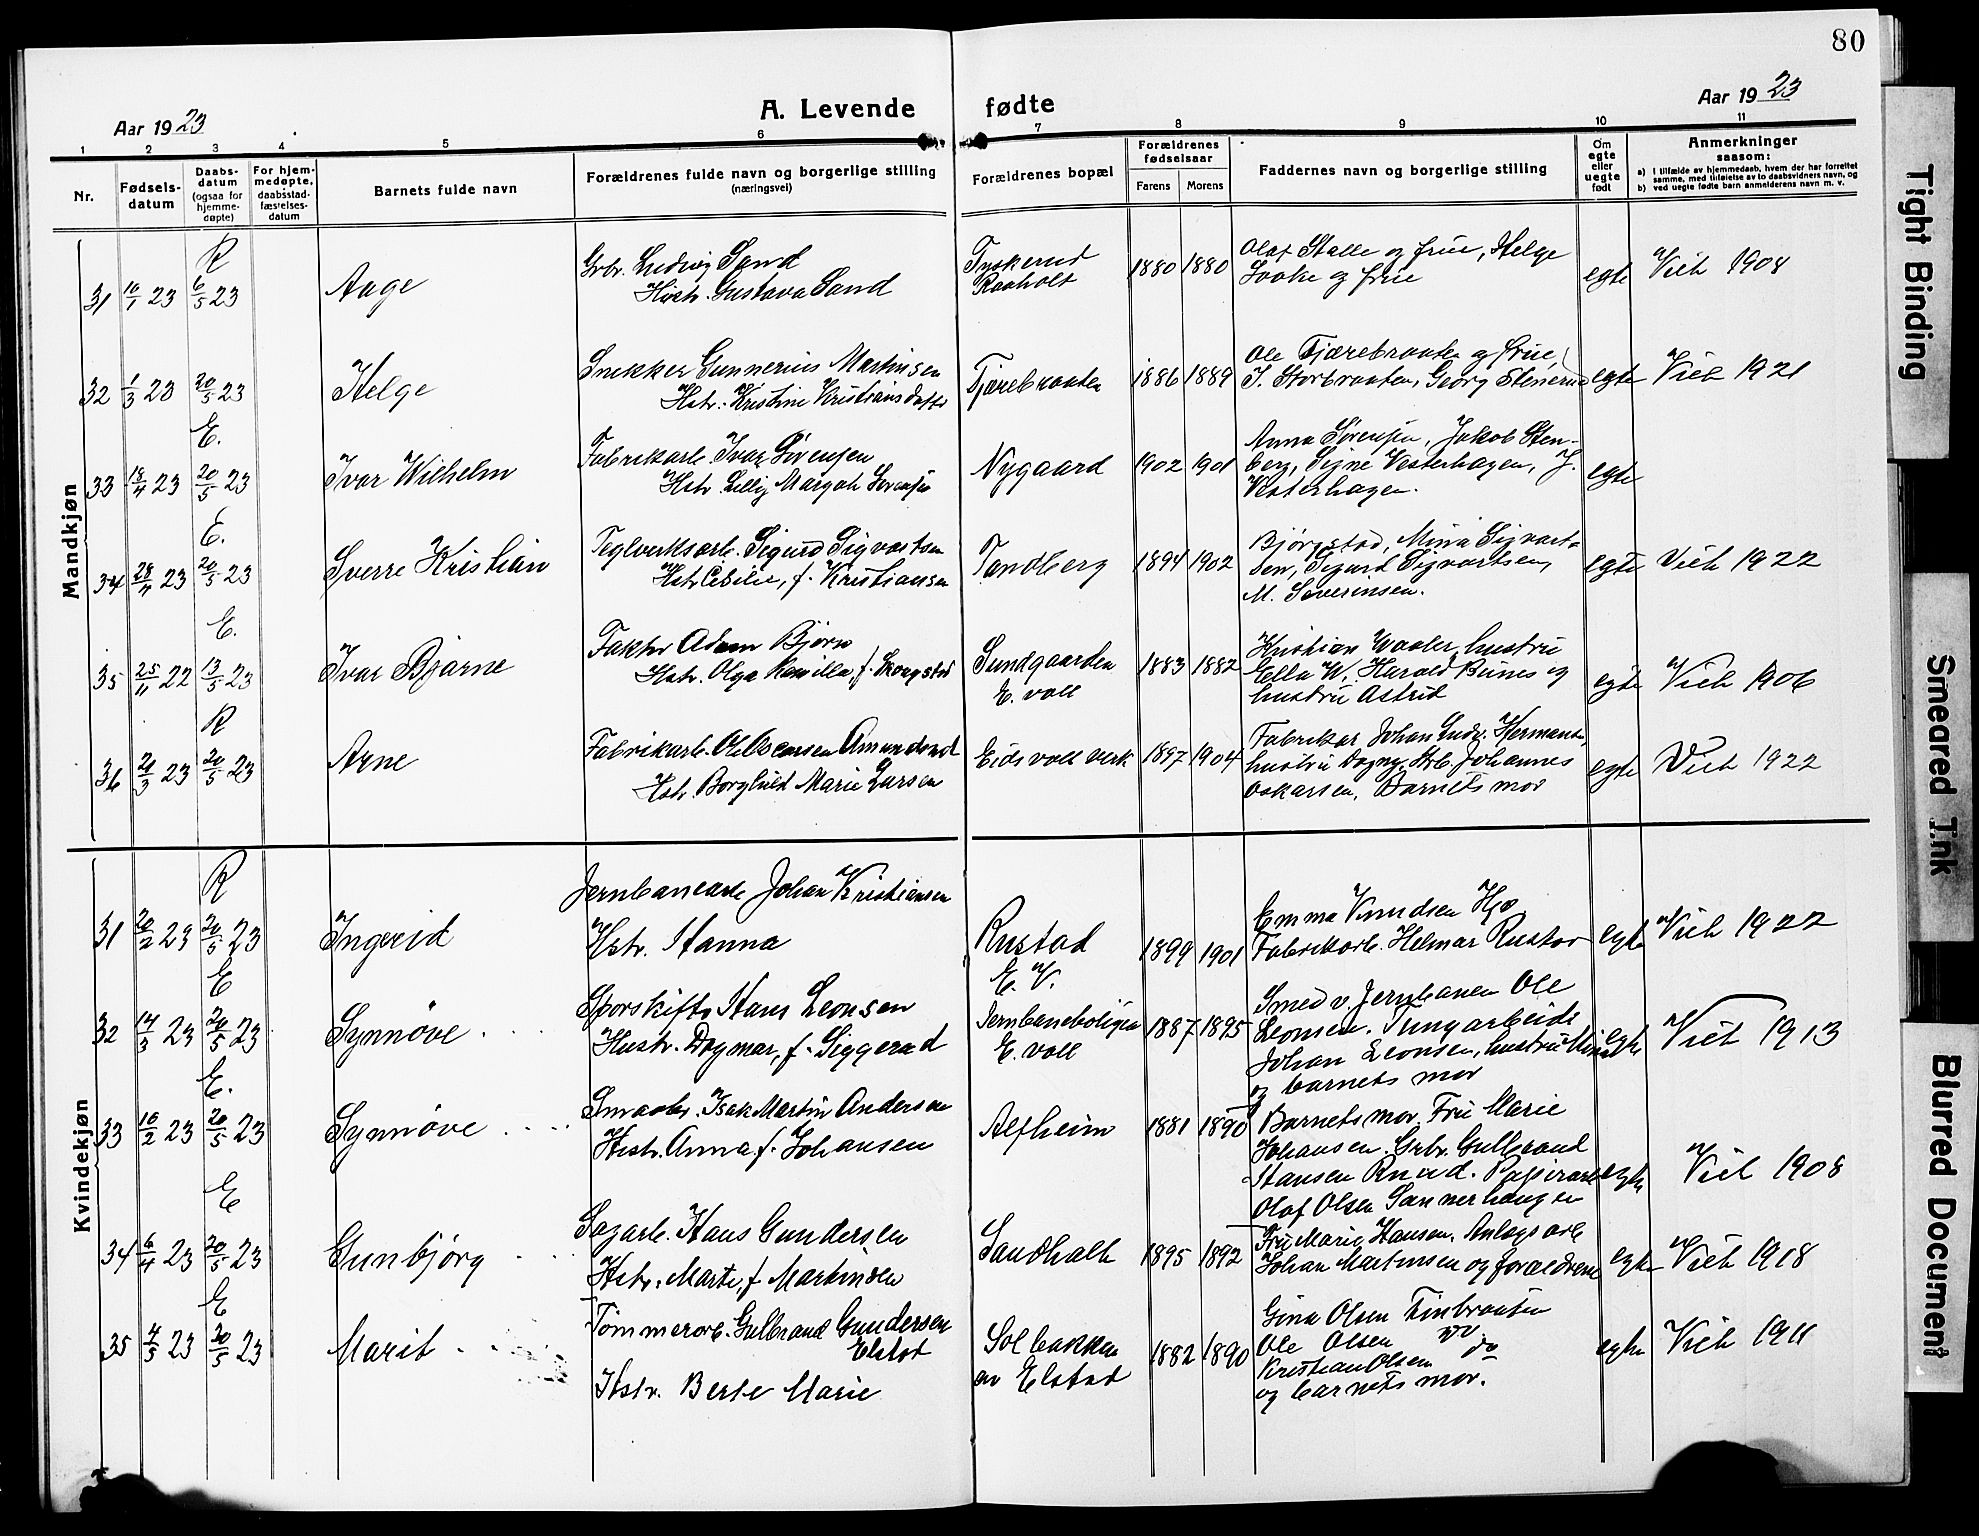 80
Aar 1923
A. Levende fødte
Aar 1923
1 2 3 4 5 6 7 8 9 10 11
Nr.
Fødsels-
datum
Daabs-
datum
(ogsaa for
hjemme-
døpte)
For hjem-
medøpte,
daabsstad-
fæstelses-
datum
Barnets fulde navn
Forældrenes fulde navn og borgerlige stilling
(næringsvei)
Forældrenes bopæl
Forældrenes
fødselsaar
Farens Morens
Faddernes navn og borgerlige stilling
Om
egte
eller
uegte
født
Anmerkninger
saasom:
a) I tilfælde av hjemmedaab, hvem der har forrettet
samme, med tilføielse av to daabsvidners navn, og
b) ved uegte fødte barn anmelderens navn m. v.
Mandkjøn
R
31 16/1 23 6/5 23 Aage
Grbr. Ludvig Sand
Hustr. Gustava Sand
Tyskerud
Raaholt
1880 1880
Olaf Stalle og frue, Helge
og frue
egte
Vieb 1908
32 1/3 23 20/5 23 Helge
Snekker Gunnerius Martinsen
Hstr. Kristine Kristiansdatter
Tjærebraaten
1886 1889
Ole Tjærebraaten og frue,
J. Storbraaten, Georg Stenerud
egte
Vieb 1921
E.
33 18/4 23 20/5 23 Ivar Wilhelm
Fabrikarb. Ivar Sørensen
Hstr. Lilly Margot Sørensen
Nygaard
1902 1901
Anna Sørensen, Jakob Sten-
berg, Signe Vesterhagen, J.
Vesterhagen.
egte
E.
34 28/4 23 20/5 23 Sverre Kristian
Teglverksarb. Sigurd Sigvartsen
Hstr. Cecilie, f. Kristiansen
Tandberg
1894 1902
Bjørgstad, Mina Sigvart-
sen, Sigurd Sigvartsen,
M. Severinsen.
egte
Vieb 1922
E.
35 25/11 22 13/5 23 Ivar Bjarne
Faktor Adam Bjørn
Hstr. Olga Kamilla, f. Skougstad
Sundgaarden
E. voll
1883 1882
Kristian Waaler, hustru
Ella W, Harald Bünes og
hustru Astrid
egte
Vieb 1906
R
36 21/3 23 20/5 23 Arne
Fabrikarb. Ole Amundsrud
Hstr. Borghild Marie Larsen
Eidsvoll verk
1897 1904
Fabrikar. Johan Ludv. Hermans,
hustru Dagny, Johannes
Oskarsen, Barnets mor
egte
Vieb 1922
Kvindekjøn
R
31 20/2 23 20/5 23 Ingerid
Jernbanearb. Johan Kristiansen
Hstr. Hanna
Rustad
E. V.
1899 1901
Emma Knudsen
Fabrikarb. Helmar Rustad
egte
Vieb 1922
E
32 14/3 23 20/5 23 Synnøve
Sporskift. Hans Leonsen
Hustr. Dagmar, f. Siggerud
Jernbaneboligen
E. voll
1887 1895
Smed v. Jernbanen Ole
Leonsen. Tungarbeid.
Johan Leonsen, hustru
og barnets mor
egte
Vieb 1913
E.
33 10/2 23 20/5 23 Synnøve
Smaabr. Isak Martin Andersen
Hstr. Anna f. Johansen
Alfheim
1881 1890
Barnets mor, Fru Marie
Johansen. Grbr. Gulbrand
Hansen Ruud. Papirarb.
Olaf Olsen Sannerhaugen
egte
Vieb 1908
E
34 6/4 23 20/5 23 Gunbjørg
Sagarb. Hans Gundersen
Hstr. Marte, f. Martinsen
Sandholt
1895 1892
Fru Marie Hansen. Anlagsarb.
Johan Martinsen og forældrene
egte
Vieb 1918
E
35 4/5 23 20/5 23 Marit
Tømmerarb. Gulbrand Gundersen
Elstad
Hstr. Berte Marie
Solbakken
av Elstad
1882 1890
Gina Olsen Finbraaten
Ole Olsen do
Kristian Olsen do
og barnets mor.
egte
Vieb 1911
Tight Binding
Smeared Ink
Blurred Document